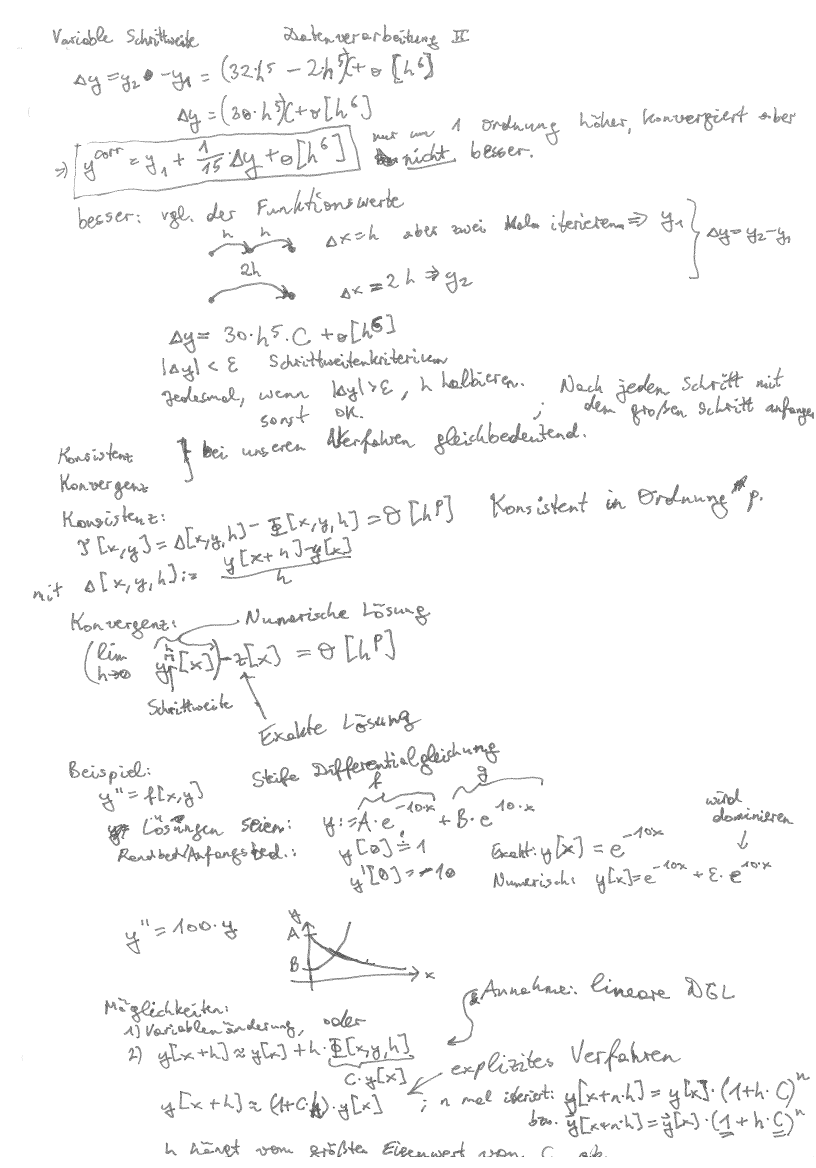 Variable Schrittweite Datenverarbeitung II
Δy = y₂ - y₁ = (32·h⁵ - 2·h⁵)C + O[h⁶]
Δy = (30·h⁵)C + O[h⁶]
⇒ y^corr = y₁ + 1/15·Δy + O[h⁶] nur um 1 Ordnung höher, konvergiert aber
nicht besser.
besser: vgl. der Funktionswerte
h h Δx = h aber zwei Mal iterieren ⇒ y₁
2h Δx = 2h ⇒ y₂ } Δy = y₂ - y₁
Δy = 30·h⁵·C + O[h⁶]
|Δy| < ε Schrittweitenkriterium
Jedesmal, wenn |Δy| > ε, h halbieren. ; Nach jedem Schritt mit
sonst OK. dem großen Schritt anfangen
Konsistenz } bei unseren Verfahren gleichbedeutend.
Konvergenz
Konsistenz:
τ[x,y] = Δ[x,y,h] - Φ[x,y,h] = O[h^p] Konsistent in Ordnung p.
mit Δ[x,y,h] := (y[x+h] - y[x])/h
Konvergenz: Numerische Lösung
(lim h→0 y^h[x]) - z[x] = O[h^p]
Schrittweite
Exakte Lösung
Beispiel: Steife Differentialgleichung
y'' = f[x,y] f g
Lösungen seien: y := A·e^(-10·x) + B·e^(10·x) wird
dominieren
Randbed/Anfangsbed.: y[0] = 1 Exakt: y[x] = e^(-10x)
y'[0] = -10 Numerisch: y[x] = e^(-10·x) + ε·e^(10·x)
y'' = 100·y
y
A
B
x
Möglichkeiten: Annahme: lineare DGL
1) Variablenänderung, oder
2) y[x+h] ≈ y[x] + h·Φ[x,y,h]
C·y[x] explizites Verfahren
y[x+h] ≈ (1+C·h)·y[x] ; n mal iteriert: y[x+n·h] = y[x]·(1+h·C)^n
bzw. y[x+n·h] = y[x]·(1+h·C)^n
h hängt vom größten Eigenwert von C ab.